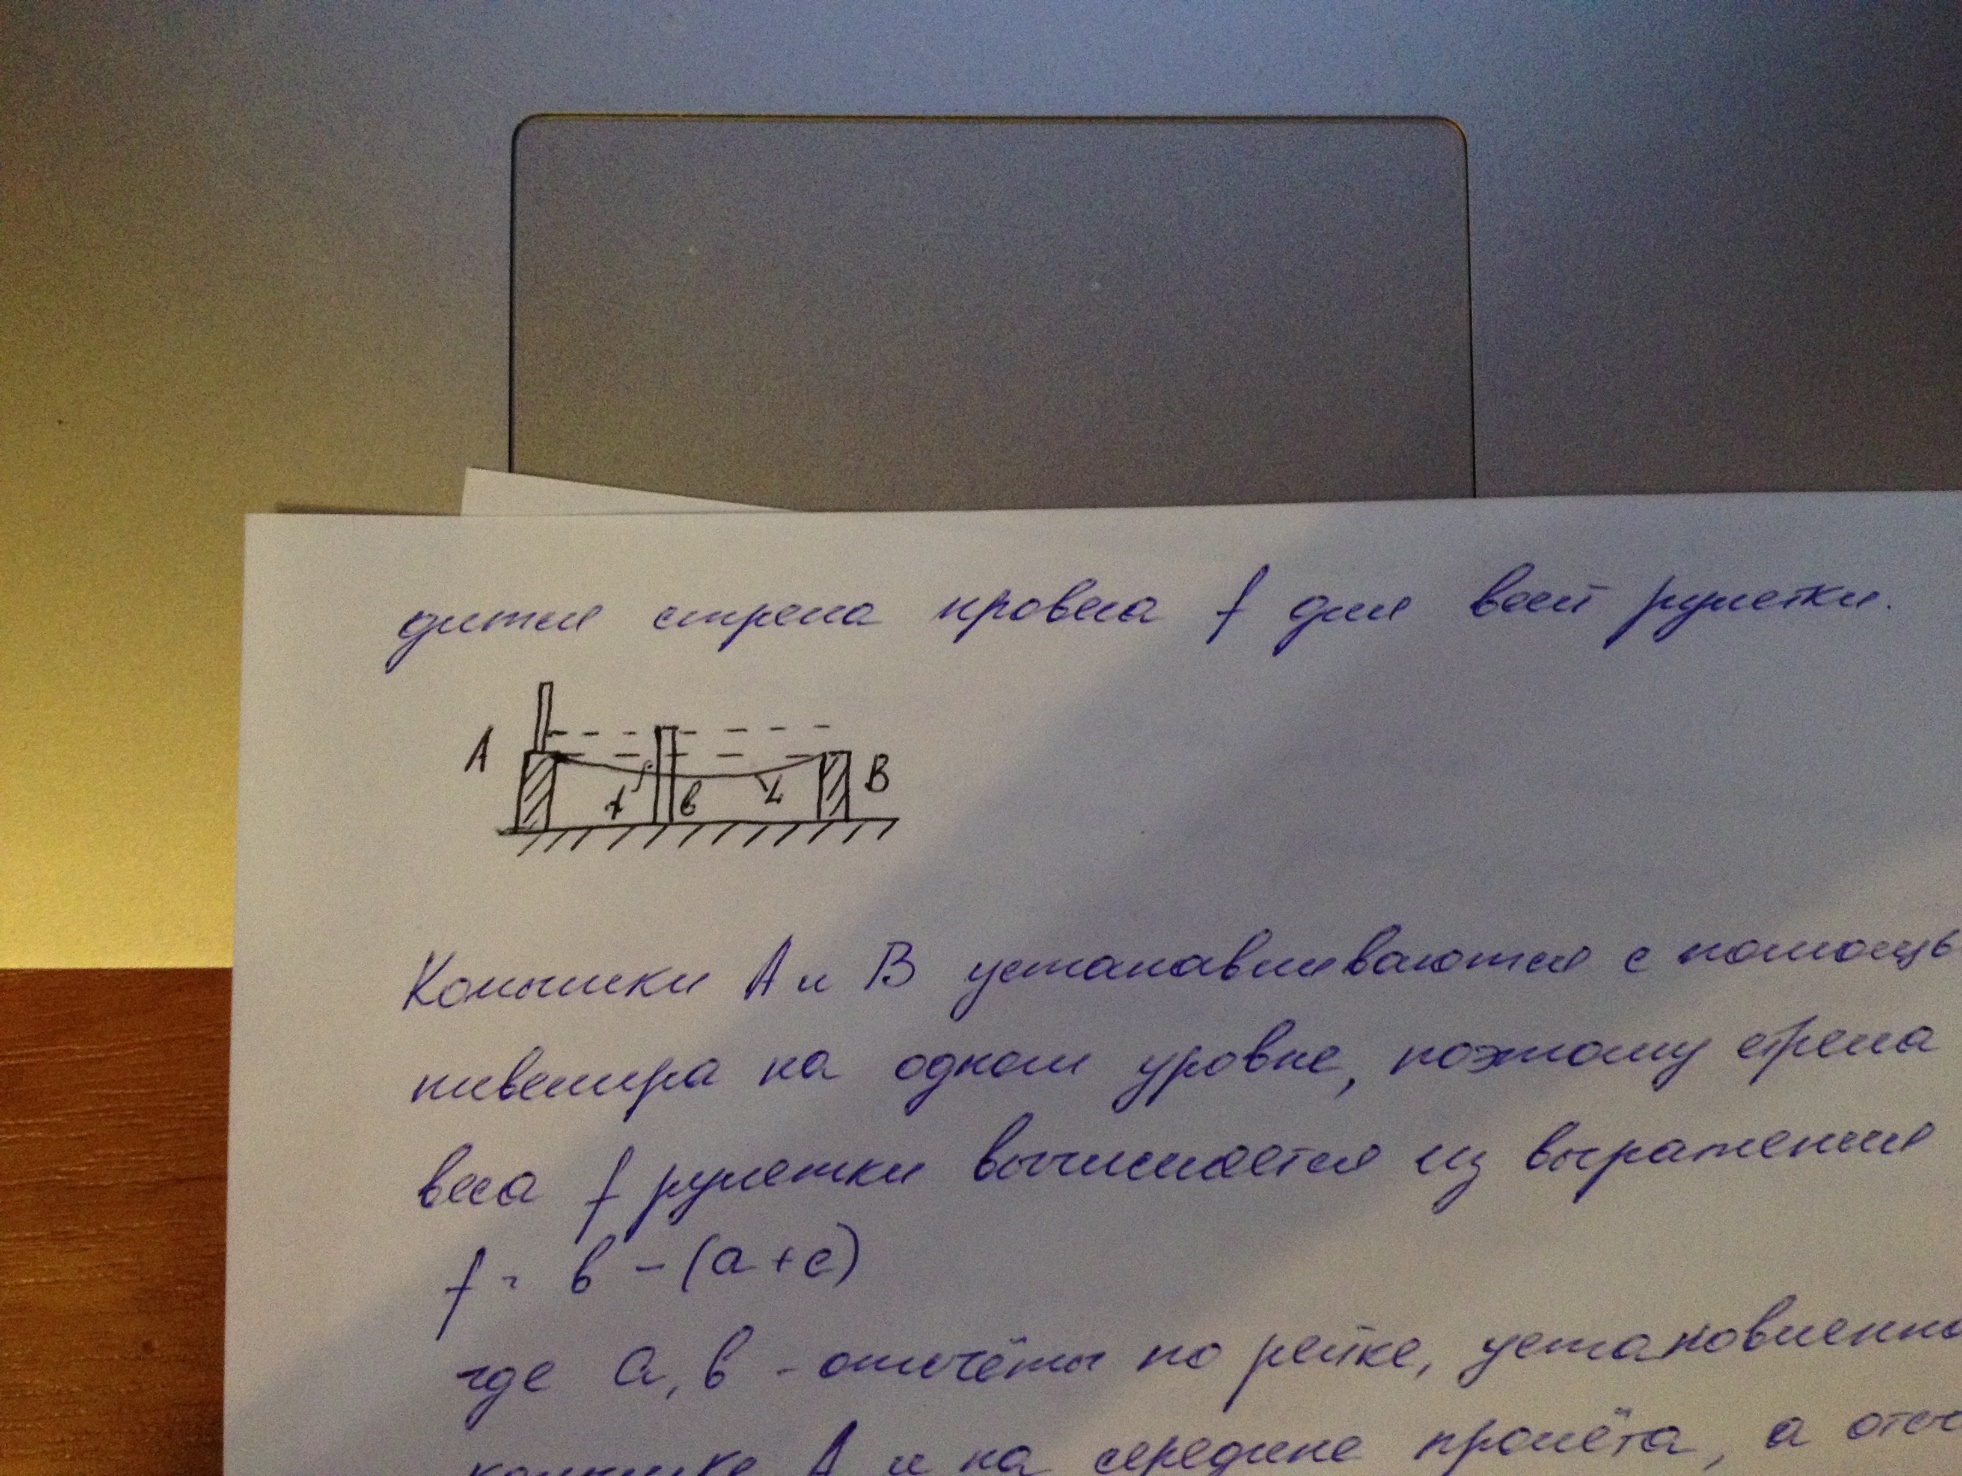 дится стрела провеса f для всей рулетки.
A
B
f
в
L
Колышки А и В устанавливаются с помощь
нивелира на одном уровне, поэтому стрела
веса f рулетки вычисляется из выражения
f = в - (а+с)
где а, в - отсчёты по рейке, установленно
колышке А и на середине пролёта, а отсч